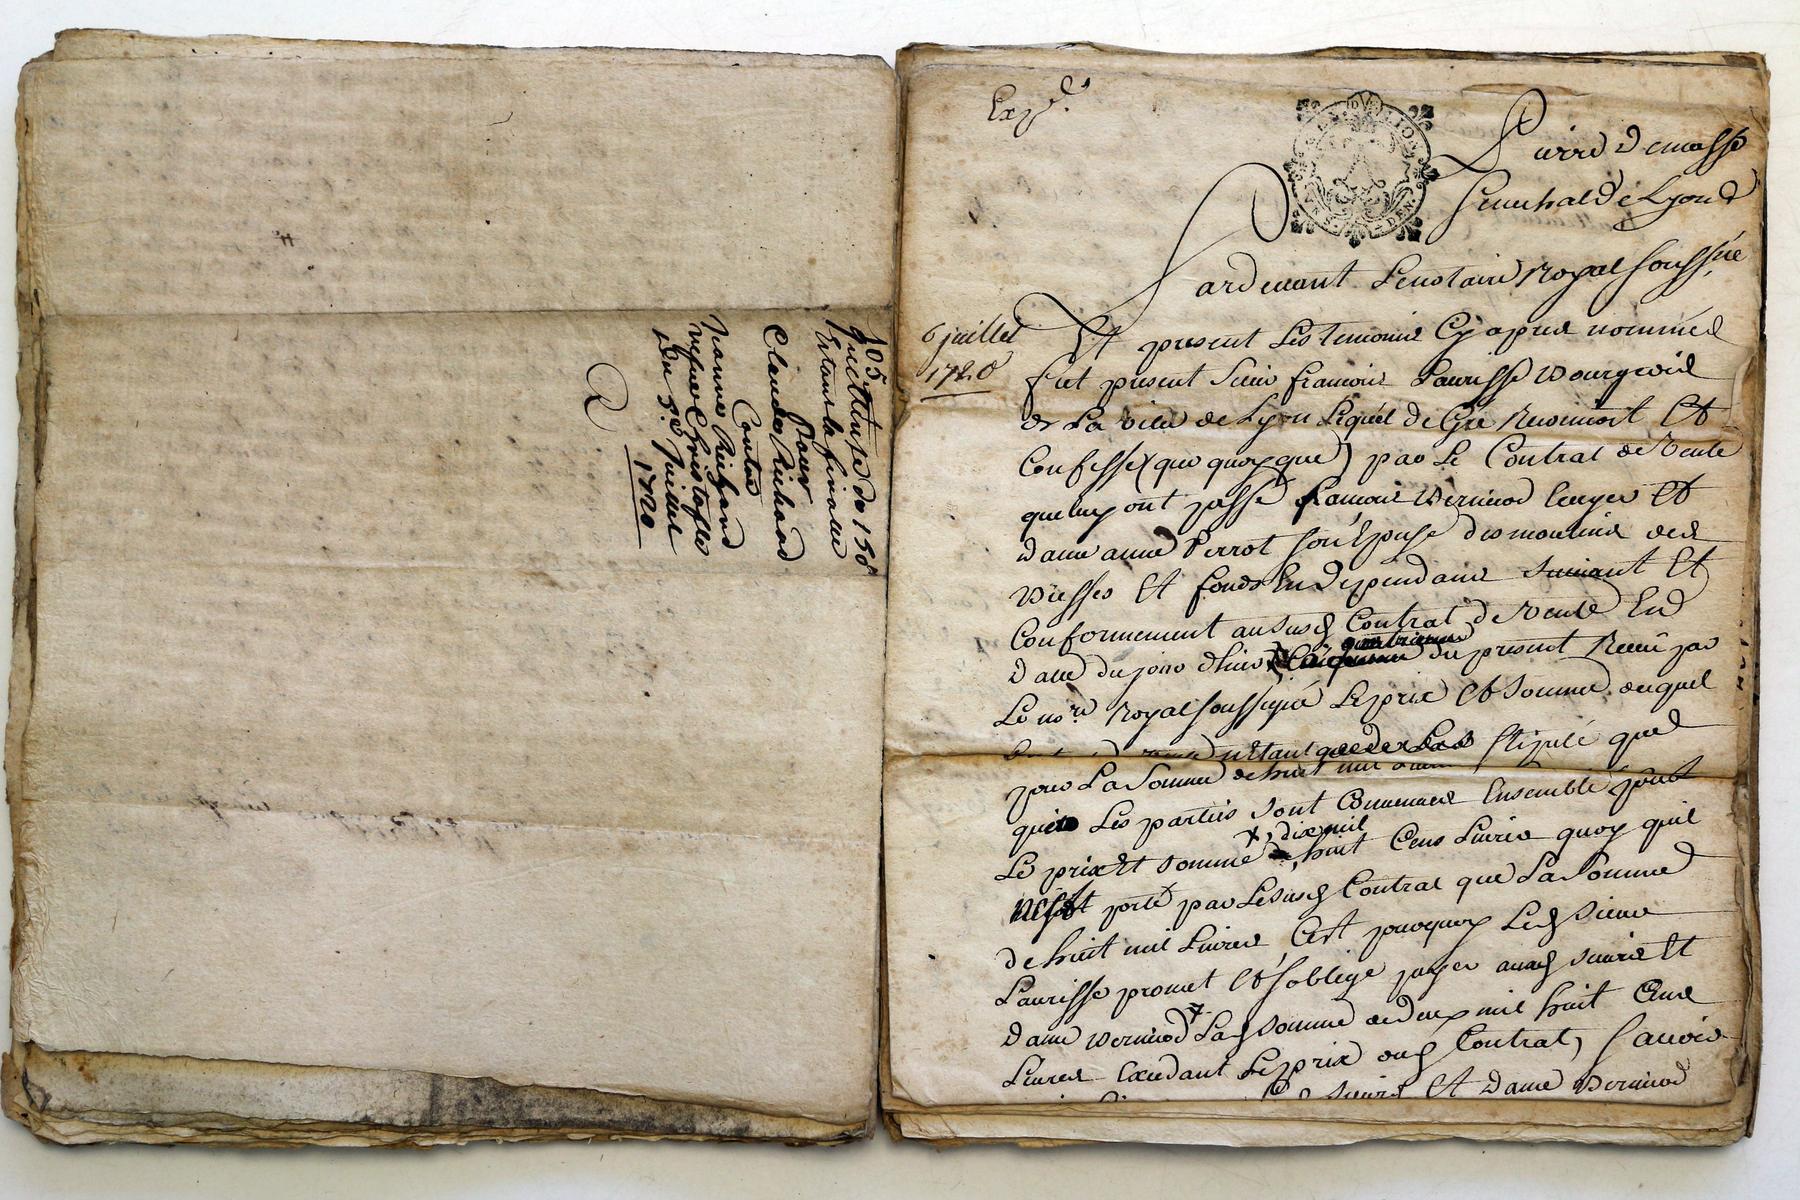 105
quittance de 150#
Estant la finalle
Pour
Claude Richard
Contre
Jeanne Richard
vefve Christofle
Du 5e Juillet
1720
Expé.
GEN. DE LYON
Pierre de masso
Senechal de Lyon
Pardevant Le notaire Royal soussné
6 juillet
1720
Et present Les temoins Cy apres nommés
fut present Sieur françois Laurisse Bourgeois
de La ville de Lyon Lequel de Gré Reconnoit Et
Confesse que quoyque par Le Contrat de Vente
que luy ont passé françois Verninod Ecuyer Et
dame anne Perrot son Epouse des moulins des
Et fonds En dependans suivant Et
Conformement audsusd Contrat de Vente En
datte du jour dhier quatrieme du present Receu par
Le nore Royal soussigné Le prix Et Somme duquel
stipulé que
pour La Somme de huit mil
que Les parties sont Convenues Ensemble
Le prix Et somme dix mil huit Cens Livres quoy quil
porté par Le susd Contrat que La Somme
de huit mil Livres Cest pourquoy Led Sieur
Laurisse promet Et soblige payer auxd sieur Et
dame Verninod Lad somme de deux mil huit Cens
Livres Excedant Le prix dud Contrat, Sçavoir
sieur Et dame Verninod